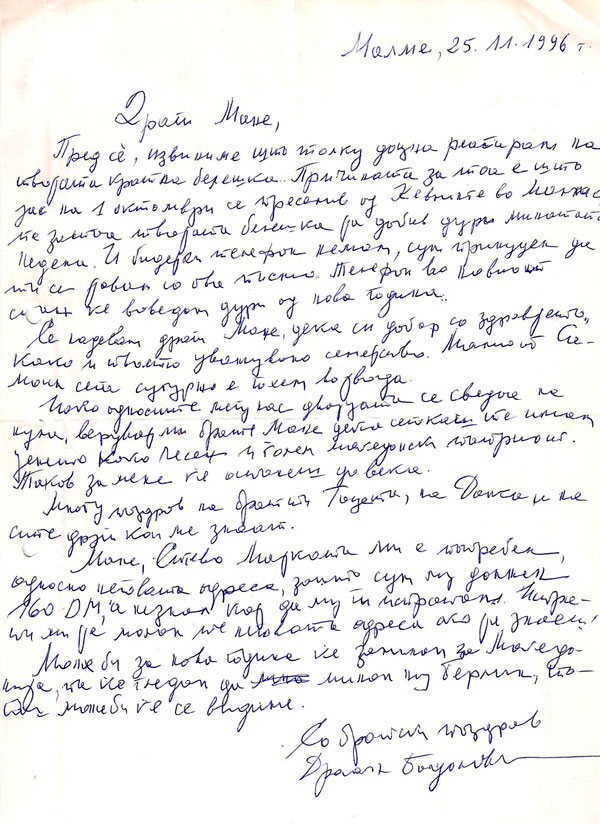 Малме, 25. 11. 1996 г.
Драги Мане,
Пред сѐ, извини ме што толку доцна реагирам на
твојата кратка белешка. Причината за тоа е што
јас на 1 октомври се преселив од
та затоа твојата белешка ја добив дури минатата
недела. И бидејќи телефон немам, сум принуден да
ти се јавам со ова писмо. Телефон во новиот
стан ќе воведам дури од нова година.
Се надевам драги Мане, дека си добар со здравјето,
како и твоето уважувано семејство. Малиот Си-
моин сега сигурно е голем
Иако односите меѓу нас двајцата се сведоа на
нула, верувај ми брате Мане дека сеткаш те имам
ценето како чесен и голем македонски патриот.
Таков за мене ќе останеш до века.
Многу поздрав на братот Гоцета, на Данка и на
сите други кои ме знаат.
Мане, Стево Марката ми е потребен,
односно неговата адреса, зашто сум му должен
160 DM, а незнам кај да му ги испратам. Испра-
ти ми ја молам те неговата адреса ако ја знаеш!
Може би за нова година ќе заминам за Македо-
нија, па ќе гледам да минам низ Берлин, то-
гаш можеби ќе се видиме.
Со братски поздрав
Драган